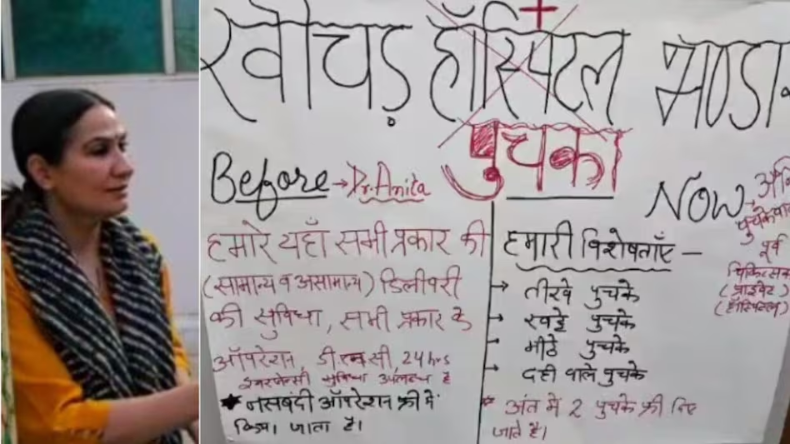 खीचड़ हॉस्पिटल
पुचका
Before → Dr. Anita
हमारे यहाँ सभी प्रकार की
(सामान्य व असामान्य) डिलीवरी
की सुविधा, सभी प्रकार के
ऑपरेशन, डी एन सी 24 hrs
इमरजेन्सी सुविधा उपलब्ध है
* नसबंदी ऑपरेशन फ्री में
किया जाता है।
Now →
पुचकेवाली
पूर्व
(प्राइवेट)
हमारी विशेषताएँ —
→ तीखे पुचके
→ खट्टे पुचके
→ मीठे पुचके
→ दही वाले पुचके
* अंत में 2 पुचके फ्री दिए
जाते है।